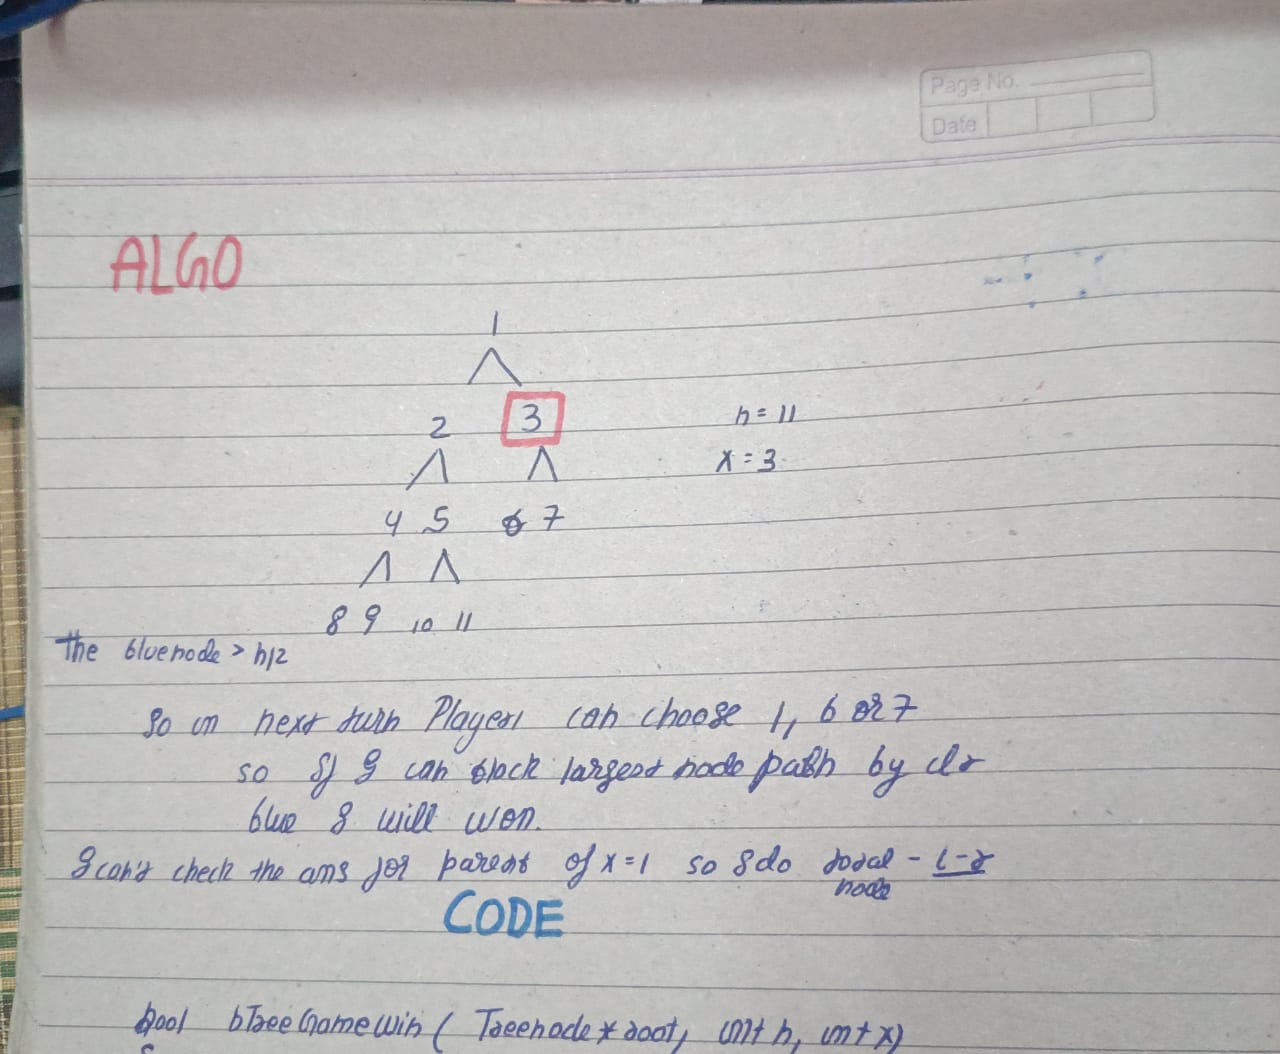 Page No.
Date
ALGO
1
2 3
h = 11
x = 3
4 5 6 7
8 9 10 11
The bluenode > h/2
So in next turn Player1 can choose 1, 6 or 7
so if I can block largest node path by
blue I will won.
I can't check the ans for parent of x=1 so I do total - l-r
node
CODE
bool bTreeGameWin( Treenode * root, int n, int x)